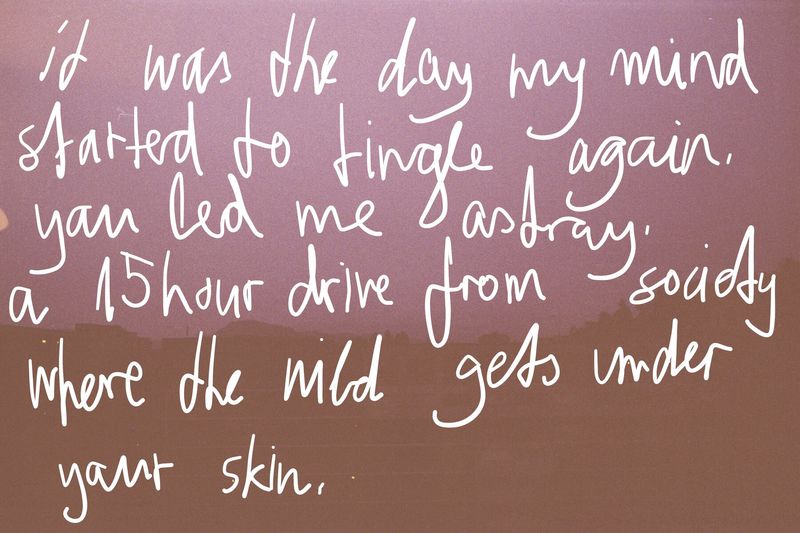 it was the day my mind
started to tingle again.
you led me astray.
a 15 hour drive from society
where the wild gets under
your skin.